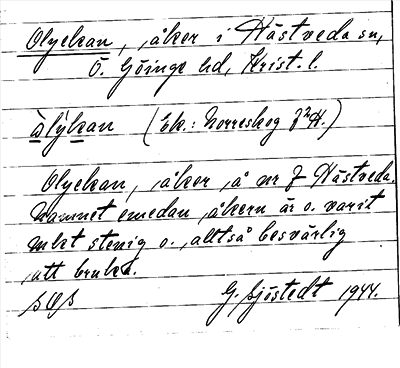 Olyckan, åker i Hästveda sn,
Ö. Göinge hd, Krist. l.
òlýkan (Ek.: Norreskog 7²H.)
Olyckan, åker å nr 7 Hästveda.
Namnet emedan åkern är o. varit
mkt stenig o. alltså besvärlig
att bruka.
G. Sjöstedt 1944.